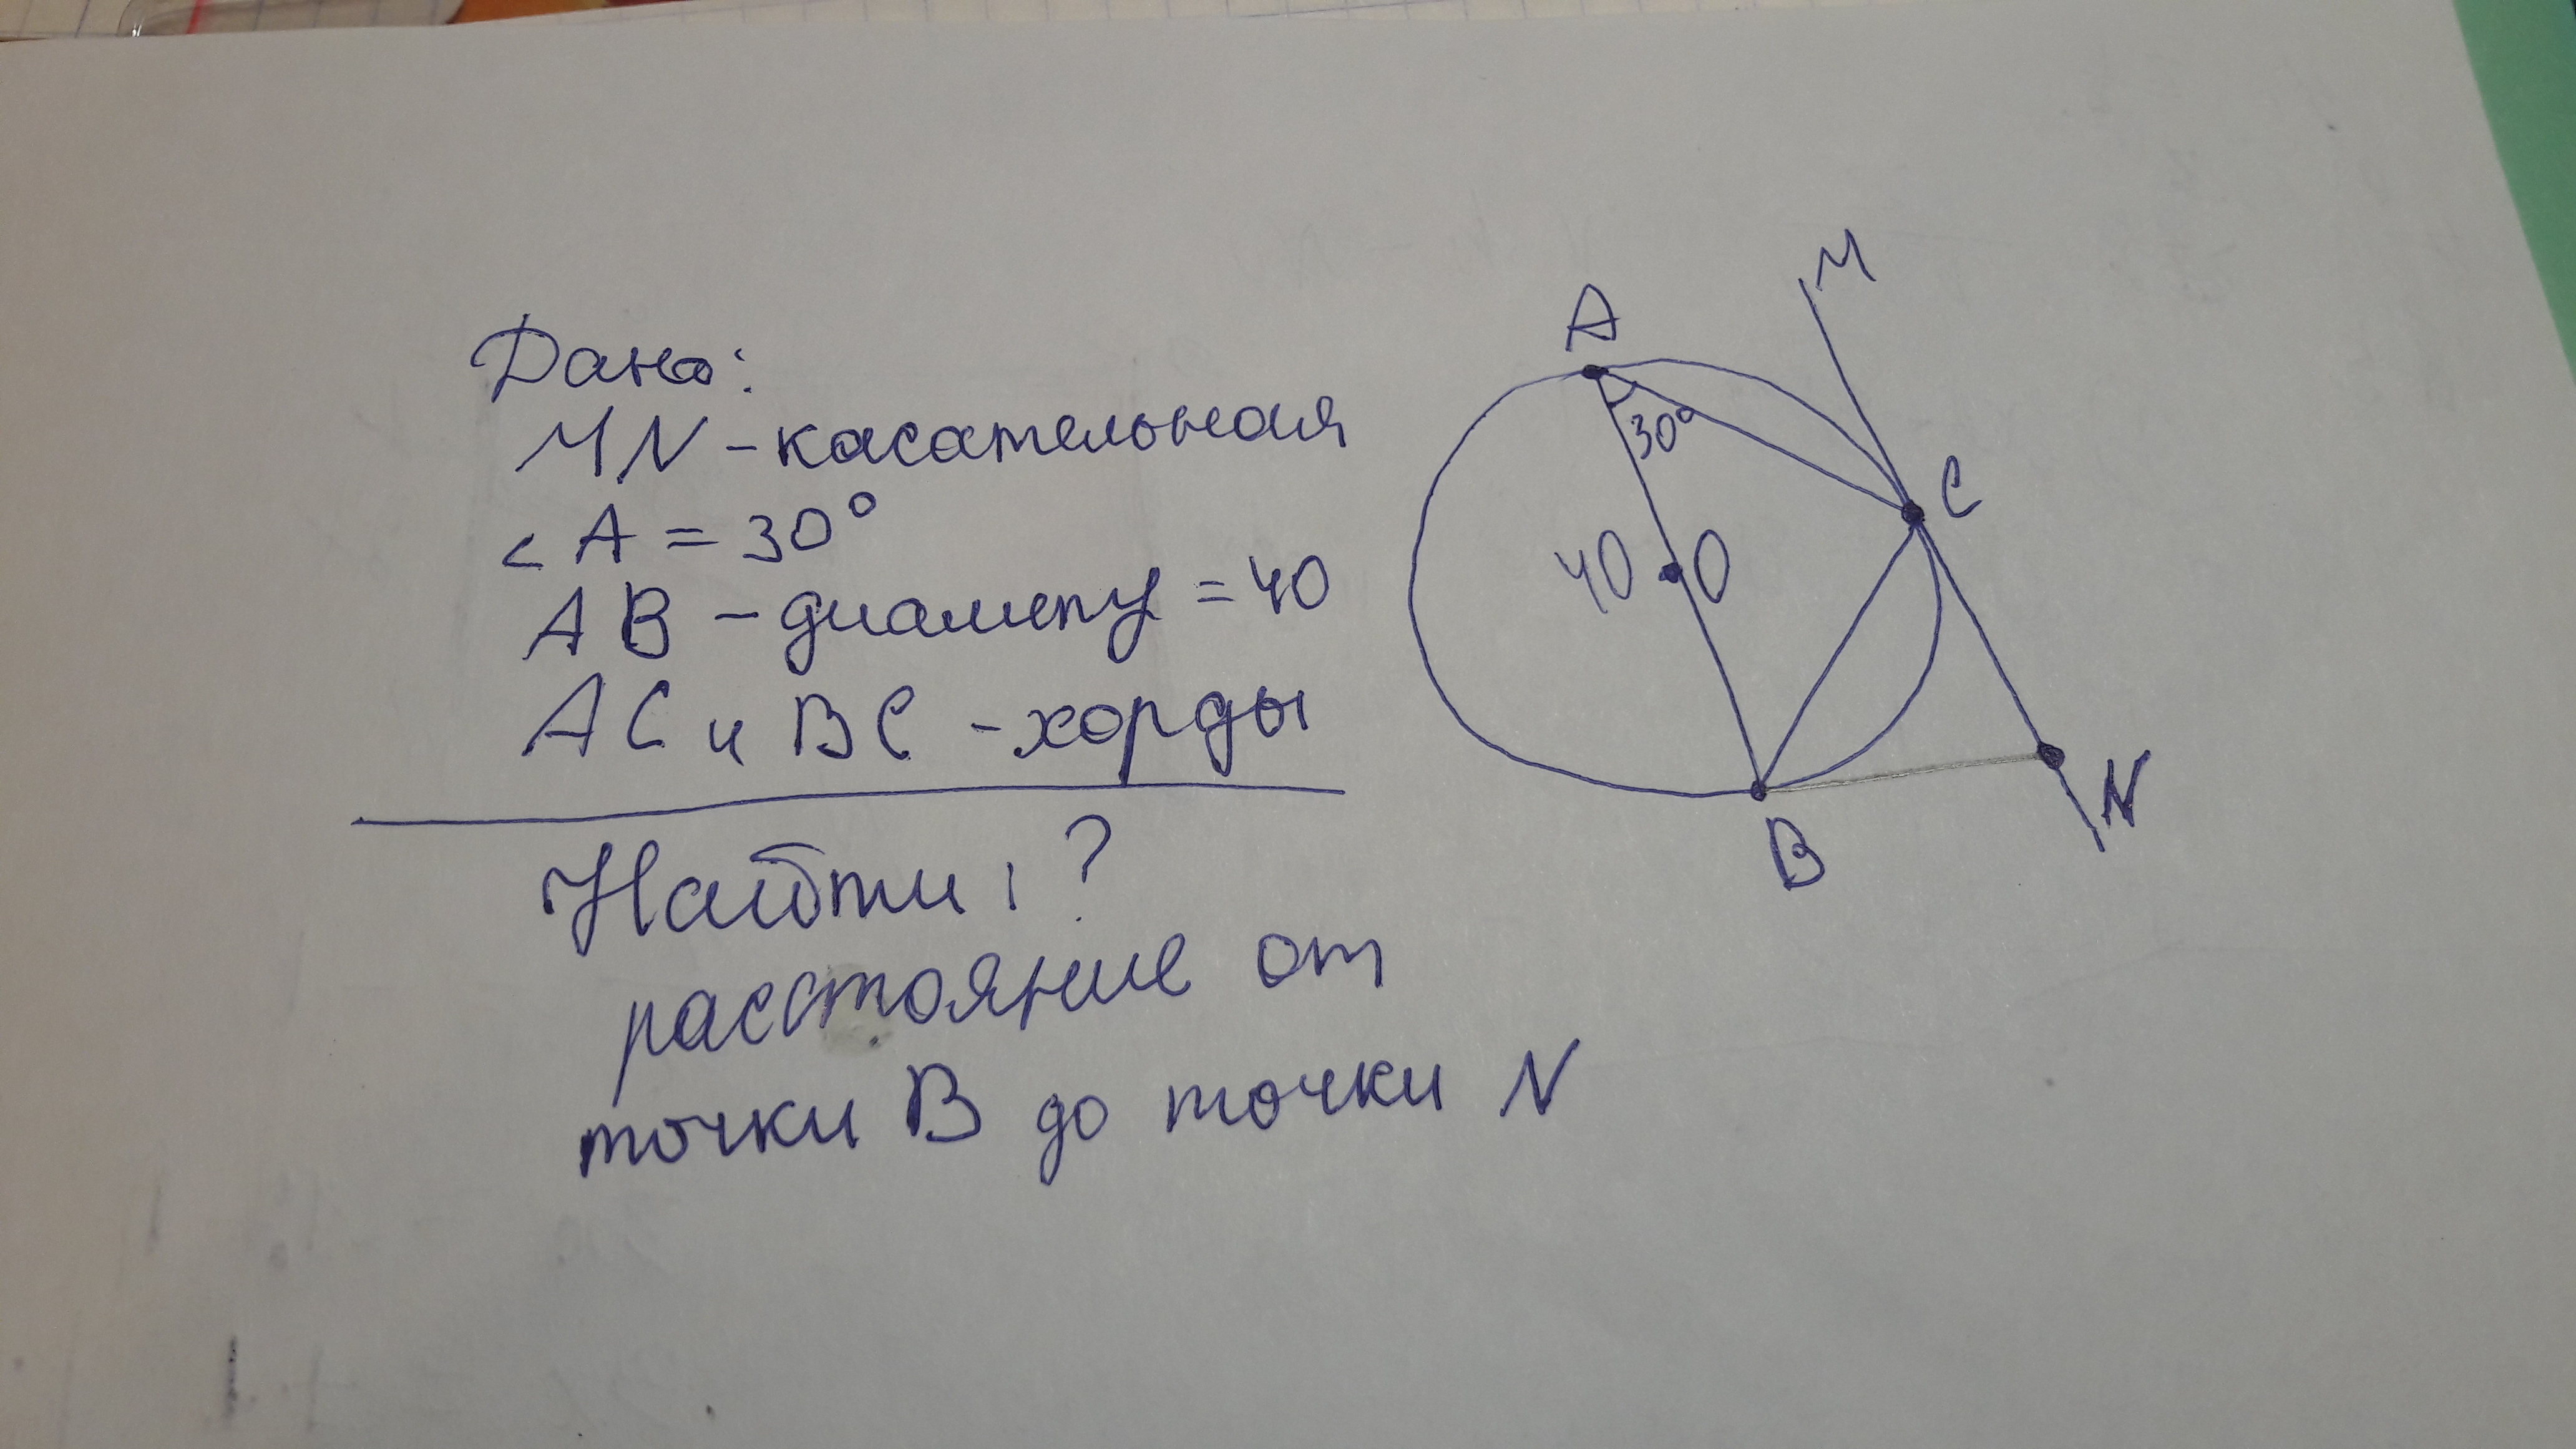 Дано:
MN - касательная
< A = 30°
AB - диаметр = 40
AC и BC - хорды
Найти: ?
расстояние от
точки B до точки N
A
30°
40
O
M
C
B
N